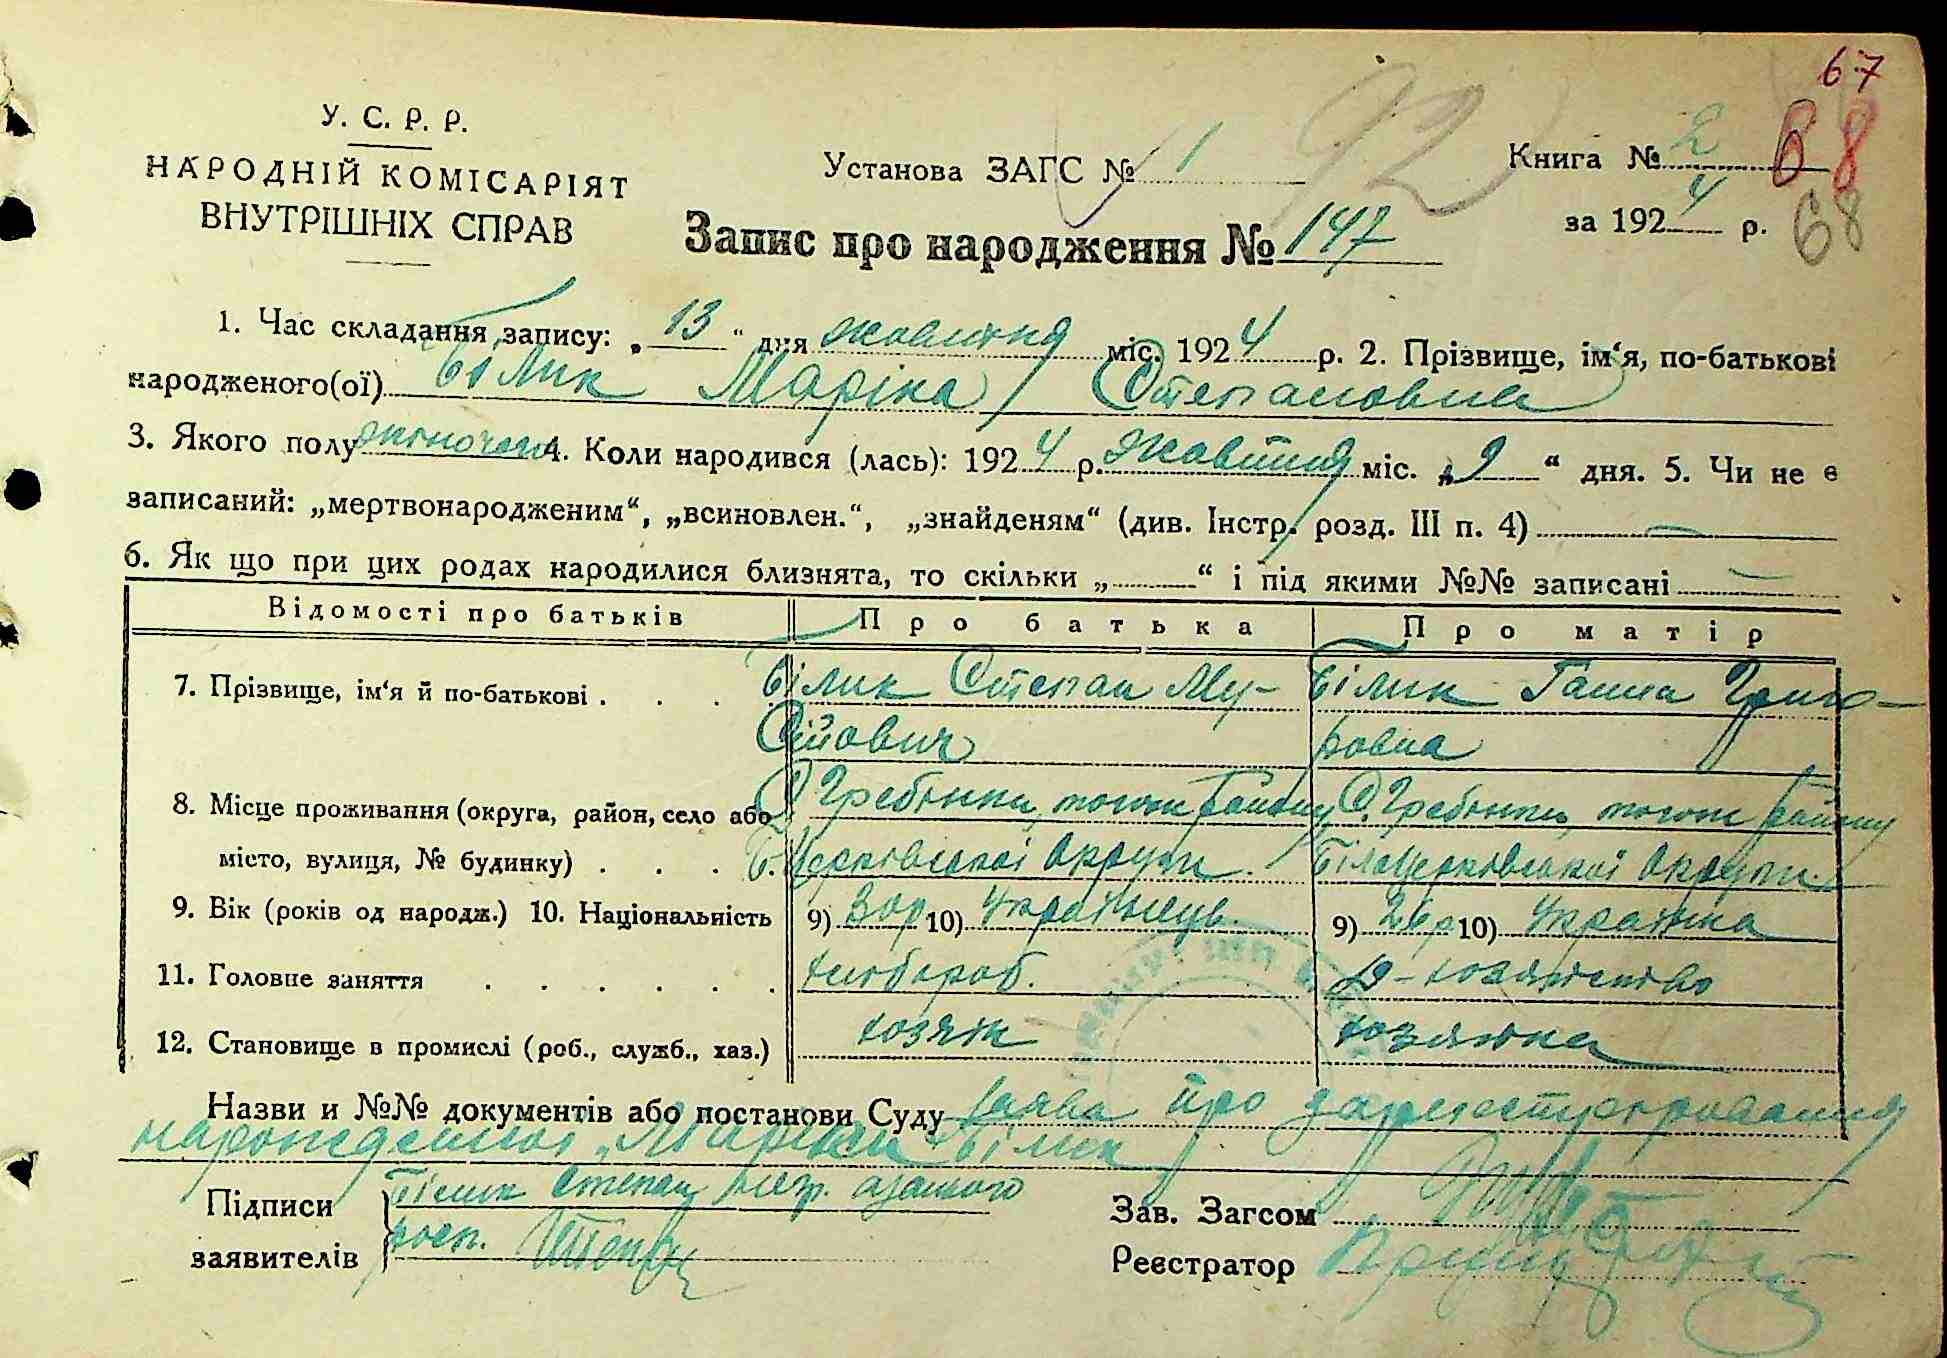 67
У. С. Р. Р.
НАРОДНІЙ КОМІСАРІЯТ
ВНУТРІШНІХ СПРАВ
Установа ЗАГС № 1
92
Книга № 2
68
за 1924 р.
68
Запис про народження № 147
1. Час складання запису: „13“ дня жовтня міс. 1924 р. 2. Прізвище, ім‘я, по-батькові
народженого(ої) Білик Маріка Степановна
3. Якого полу жіночого 4. Коли народився (лась): 1924 р. жовтня міс. „9“ дня. 5. Чи не є
записаний: „мертвонародженим“, „всиновлен.“, „знайденям“ (див. Інстр. розд. III п. 4) —
6. Як що при цих родах народилися близнята, то скільки „ “ і під якими №№ записані —
Відомості про батьків Про батька Про матір
7. Прізвище, ім‘я й по-батькові . . . Білик Степан Му- Білик Ганна Григо-
сійович ровна
8. Місце проживання (округа, район, село або С. Гребінки, того ж району С. Гребінки, того ж району
місто, вулиця, № будинку) . . . Б. Церківської округи. Білоцерківської округи.
9. Вік (років од народж.) 10. Національність 9) 30 р 10) Українець 9) 26 р 10) Українка
11. Головне заняття . . . . . . хлібороб. д-хозяйство
12. Становище в промислі (роб., служб., хаз.) хозяїн хозяйка
Назви и №№ документів або постанови Суду заява про зареєстрировання
нарожденної Маріки Білик
Підписи Білик Степан негр. а за нього
заявителів росп.
Зав. Загсом
Реєстратор